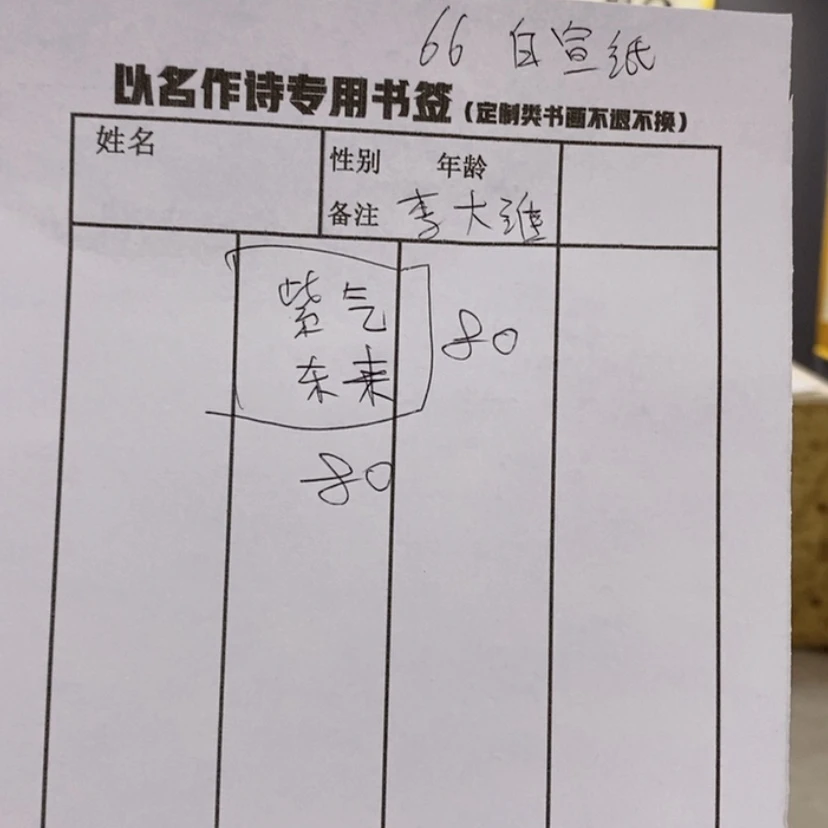 66 白宣纸
以名作诗专用书签（定制类书画不退不换）
姓名
性别 年龄
备注 李大维
紫气
东来
80
80